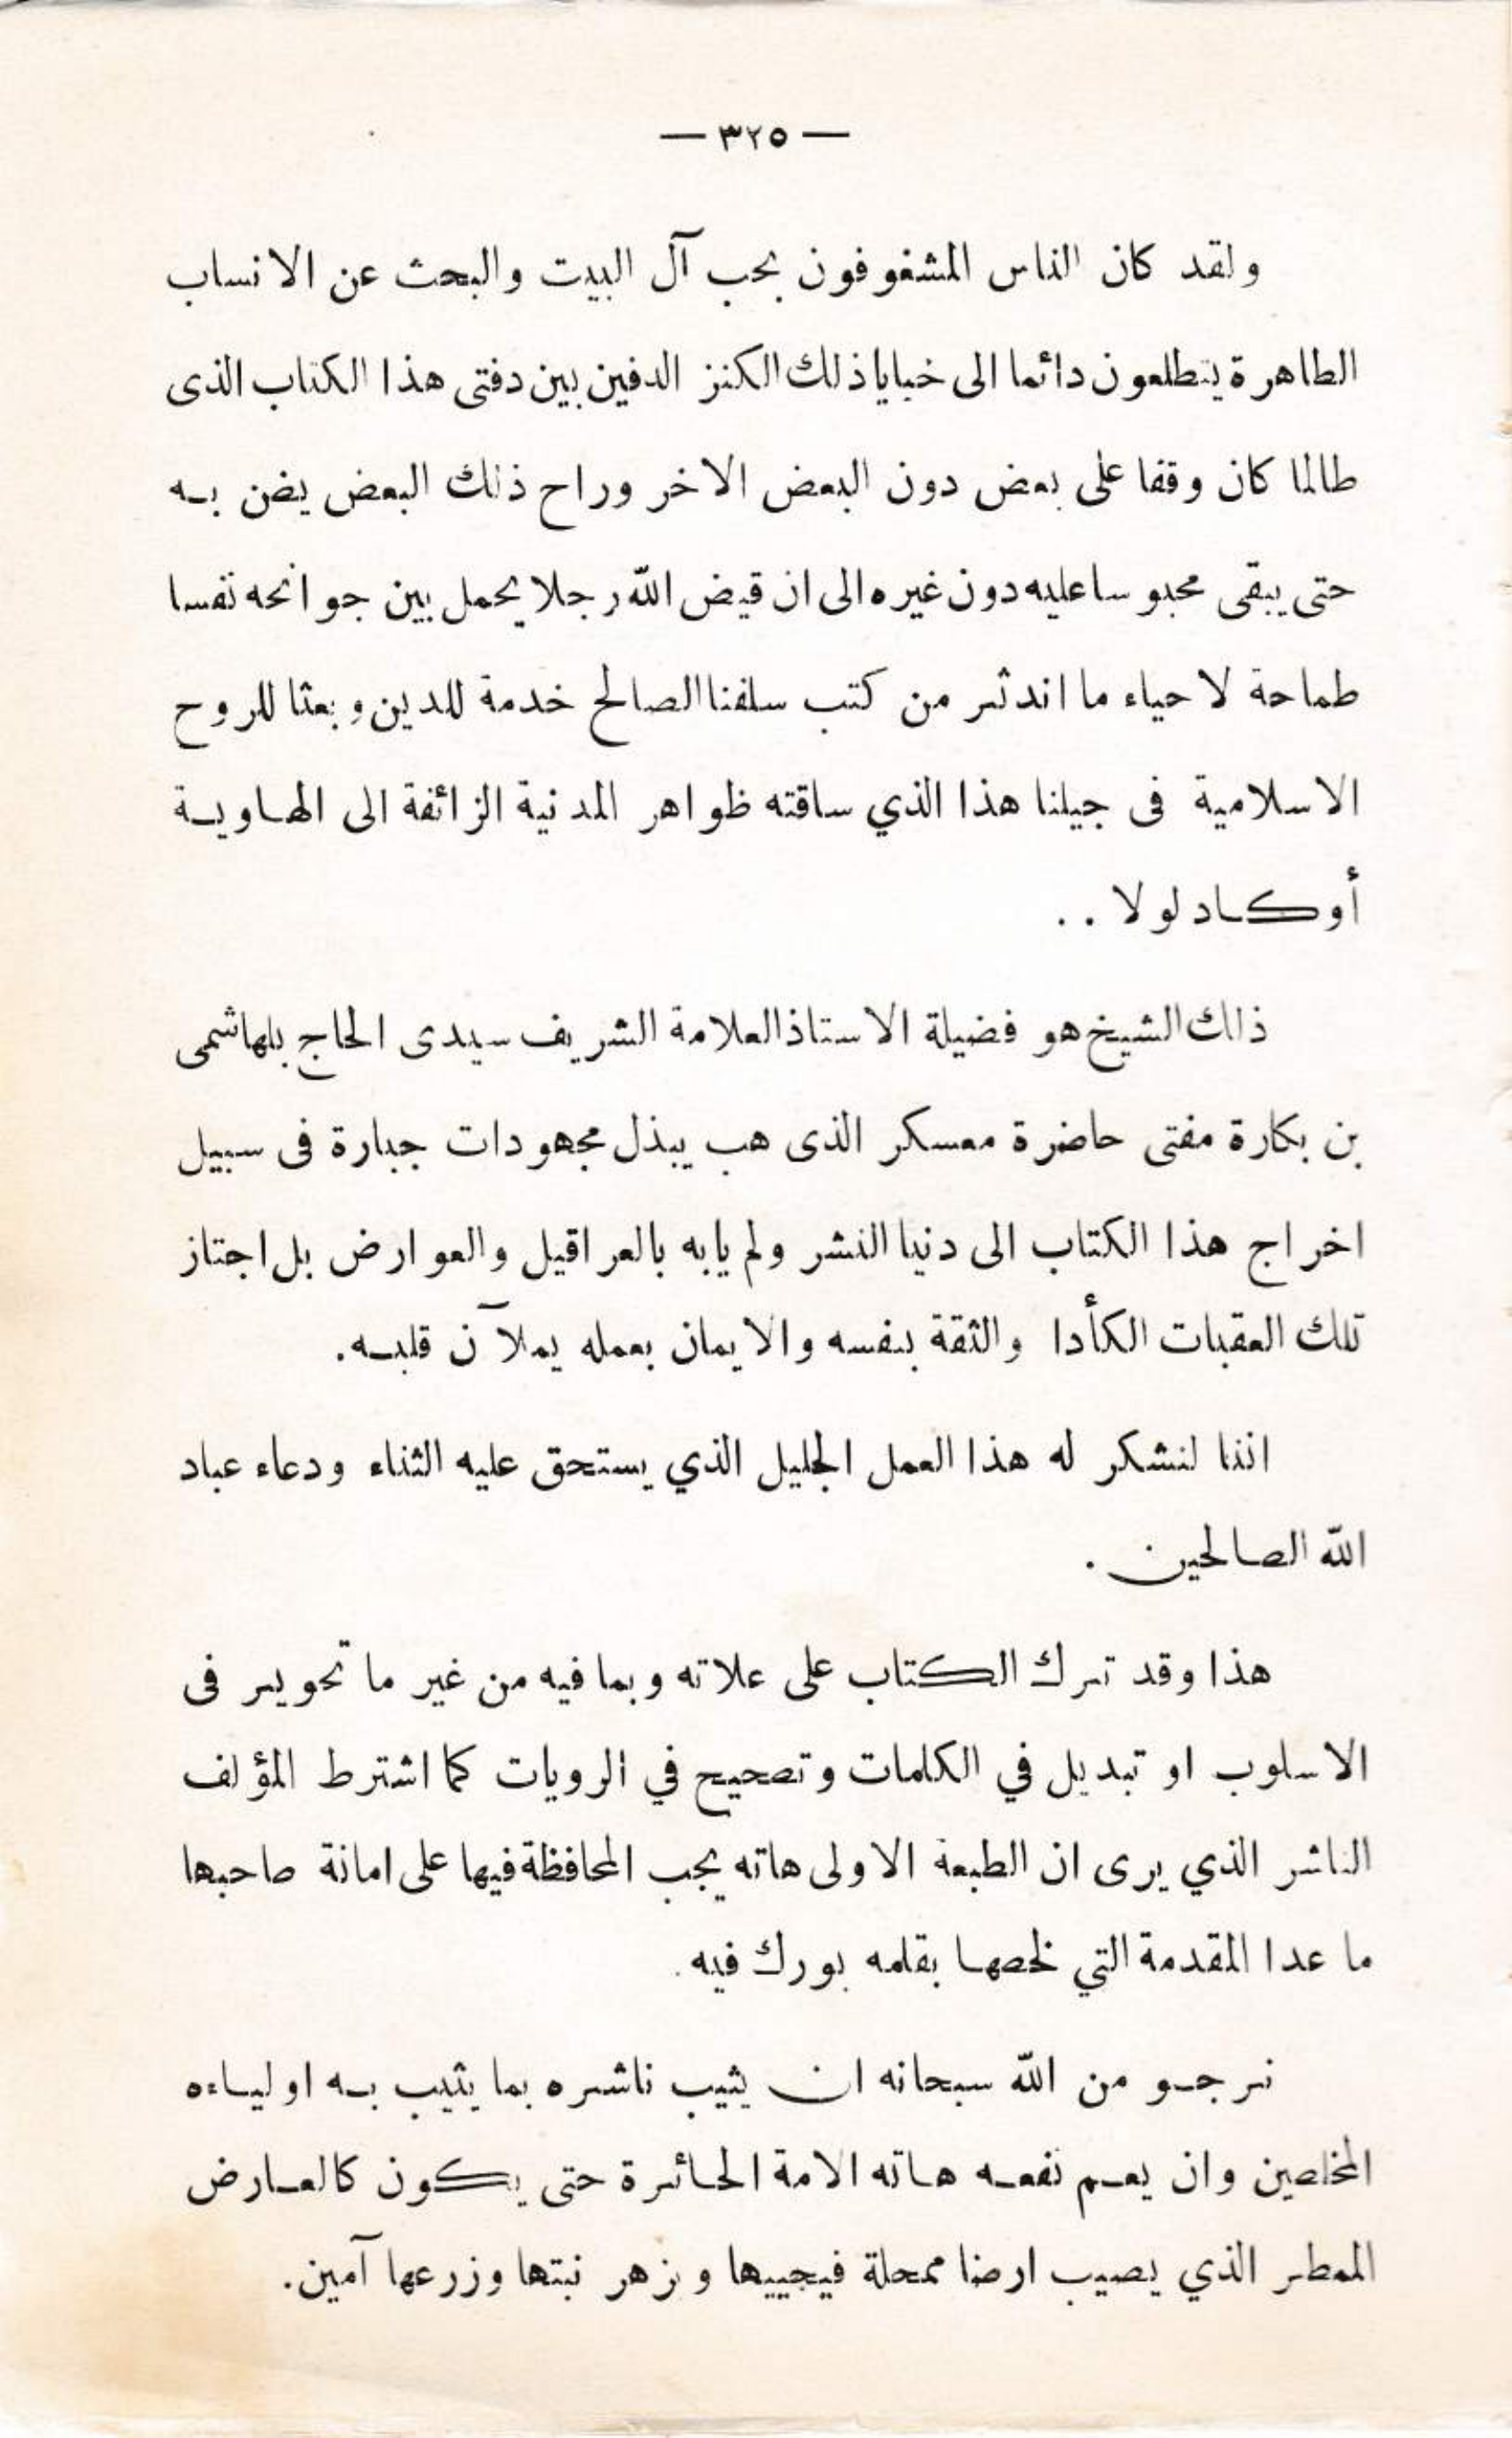 — ٣٢٥ —
ولقد كان الناس المشغوفون بحب آل البيت والبحث عن الانساب
الطاهرة يتطلعون دائما الى خبايا ذلك الكنز الدفين بين دفتى هذا الكتاب الذى
طالما كان وقفا على بعض دون البعض الاخر وراح ذلك البعض يضن بـه
حتى يبقى محبوسا عليه دون غيره الى ان قيض الله رجلا يحمل بين جوانحه نفسا
طماحة لاحياء ما اندثر من كتب سلفنا الصالح خدمة للدين وبعثا للروح
الاسلامية فى جيلنا هذا الذي ساقته ظواهر المدنية الزائفة الى الهـاويـة
أوكـاد لولا . .
ذلك الشيخ هو فضيلة الاستاذ العلامة الشريف سيدى الحاج بلهاشمى
بن بكارة مفتى حاضرة معسكر الذى هب يبذل مجهودات جبارة فى سبيل
اخراج هذا الكتاب الى دنيا النشر ولم يابه بالعراقيل والعوارض بل اجتاز
تلك العقبات الكأدا والثقة بنفسه والايمان بعمله يملآن قلبـه.
اننا لنشكر له هذا العمل الجليل الذي يستحق عليه الثناء ودعاء عباد
الله الصـالحين .
هذا وقد ترك الكتاب على علاته وبما فيه من غير ما تحوير فى
الاسلوب او تبديل في الكلمات وتصحيح في الرويات كما اشترط المؤلف
الناشر الذي يرى ان الطبعة الاولى هاته يجب المحافظة فيها على امانة صاحبها
ما عدا المقدمة التي لخصهـا بقلمه بورك فيه.
نرجـو من الله سبحانه ان يثيب ناشره بما يثيب بـه اوليـاءه
المخلصين وان يعـم نفعـه هـاته الامة الحـائرة حتى يكون كالعـارض
الممطر الذي يصيب ارضا ممحلة فيجييها ويزهر نبتها وزرعها آمين.